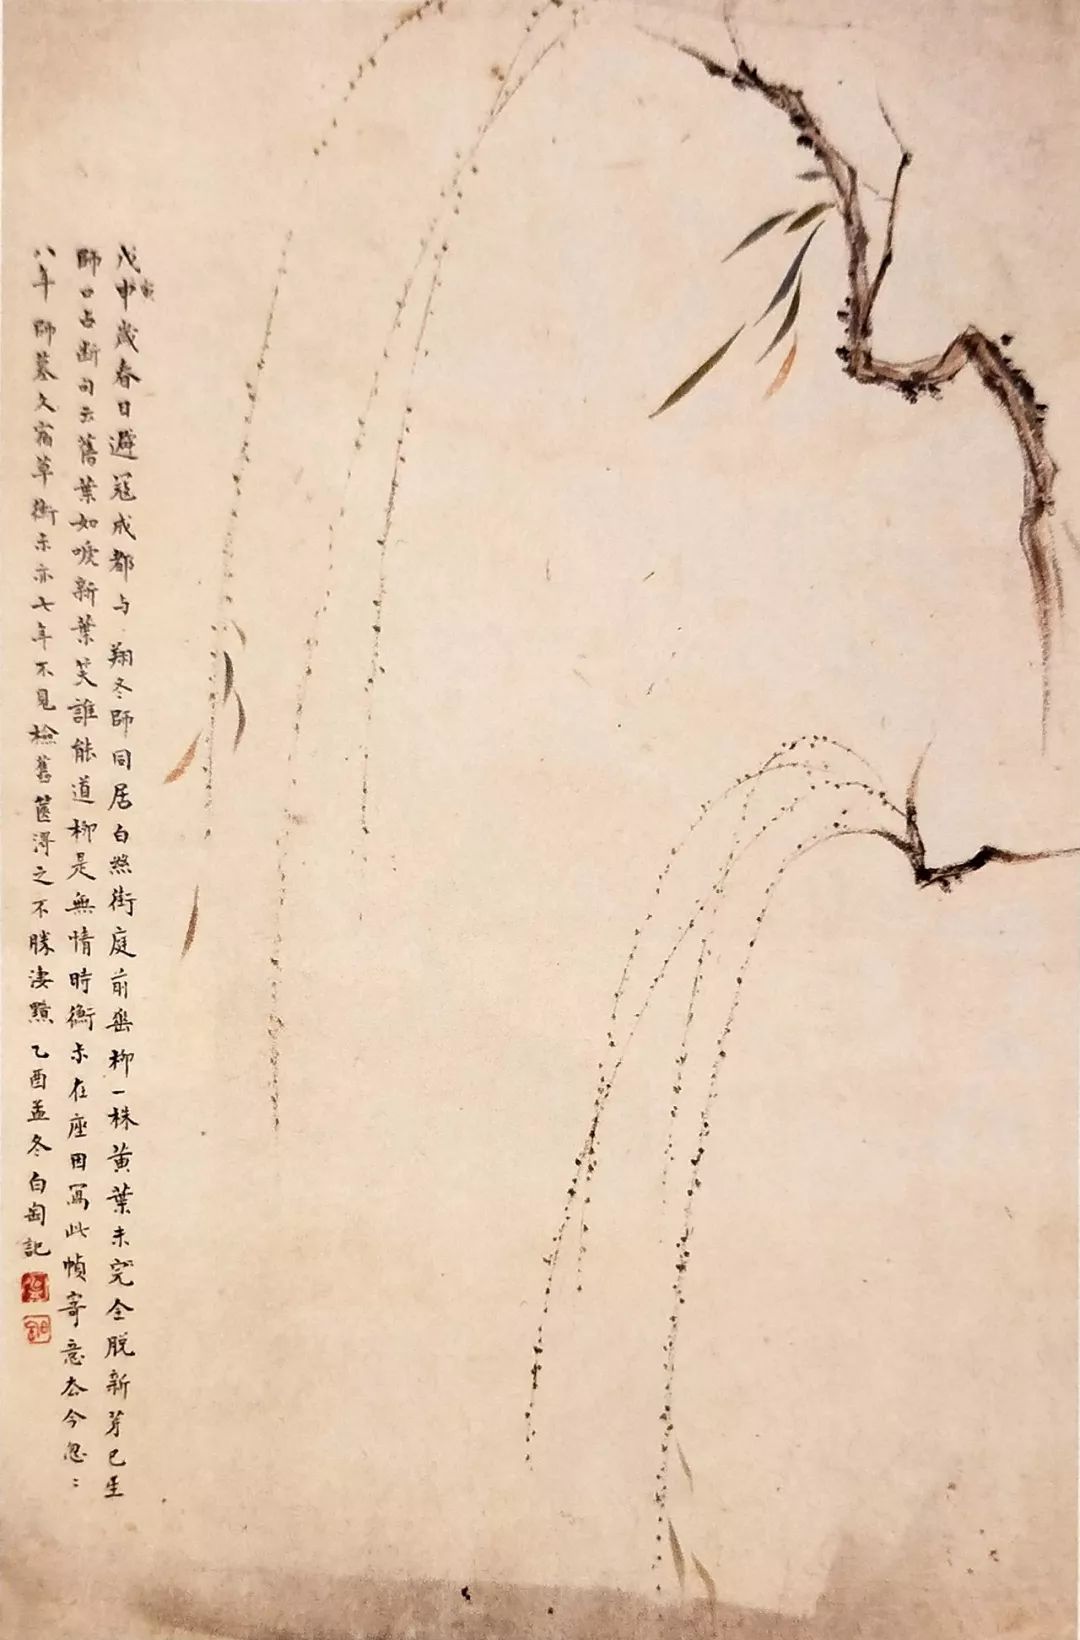 戊申寅歲春日避寇成都与翔冬師同居白絲街庭前垂柳一株黄葉未完全脱新芽已生
師口占斷句云舊葉如唳新葉笑誰能道柳是無情時衡尗在座因寫此幀寄意去今忽〻
八年師墓久宿草衡尗亦七年不見檢舊篋得之不勝淒黯乙酉孟冬白匋記